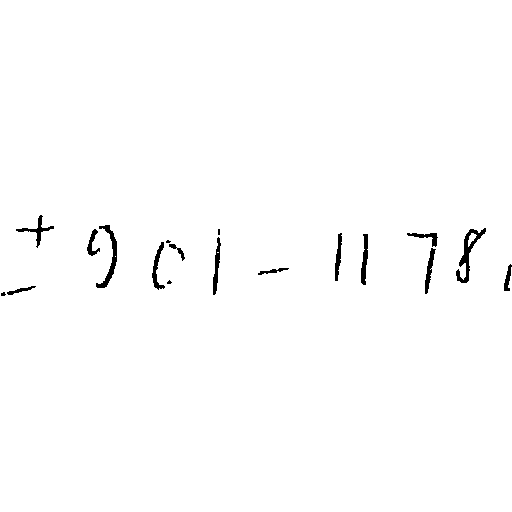 ± 901 - 1178,